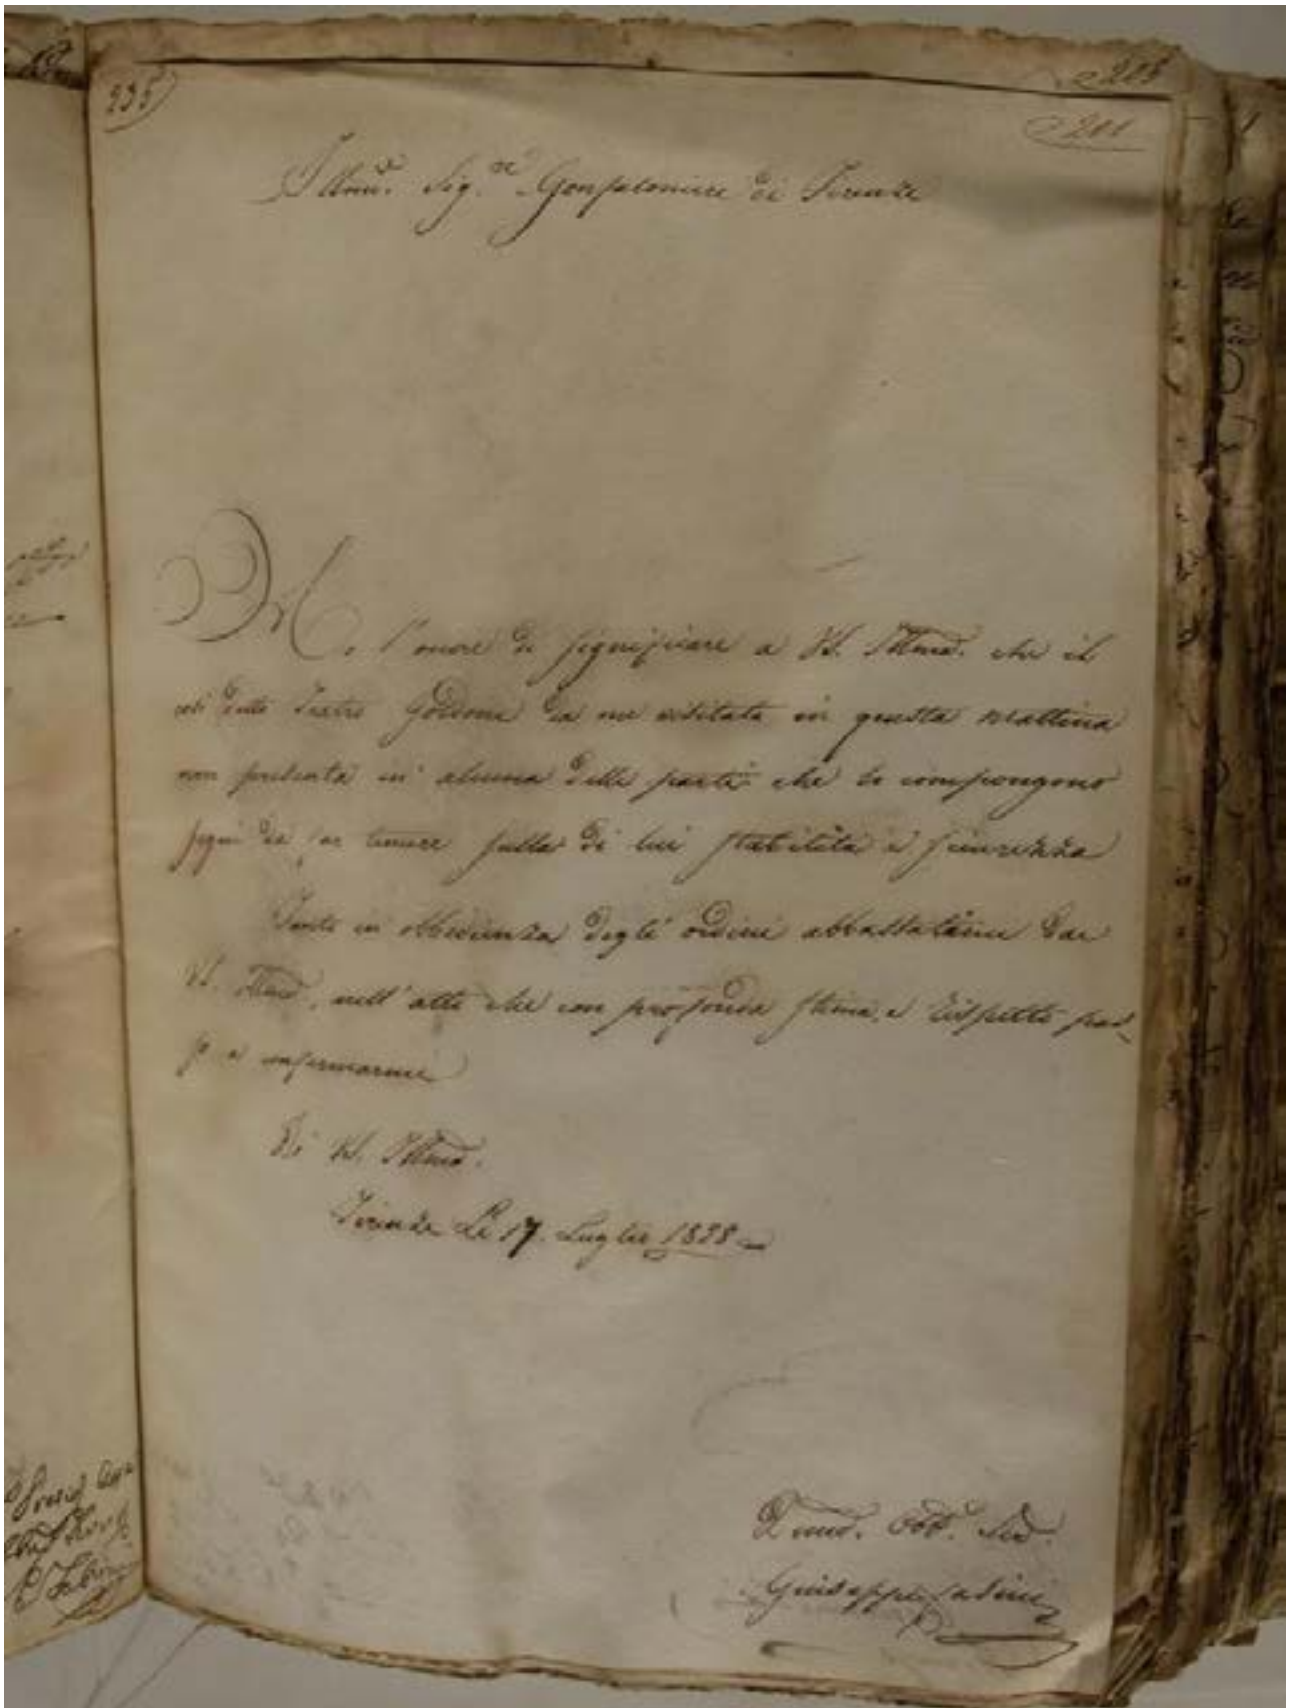 235
205
201
Illmo. Sig.re Gonfaloniere di Firenze
Ho l'onore di significare a VS. Illma. che il
così detto Teatro Goldoni da me visitato in questa mattina
non presenta in alcuna delle parti che lo compongono
segni da far temere sulla di lui stabilità e sicurezza
Tanto in obbedienza degli ordini abbassatimi da
VS. Illma, nell'atto che con profonda stima, e rispetto pas
so a confermarmi
Di VS. Illma.
Firenze Li 17. Luglio 1838
Dmo. Obb. Ser.
Giuseppe